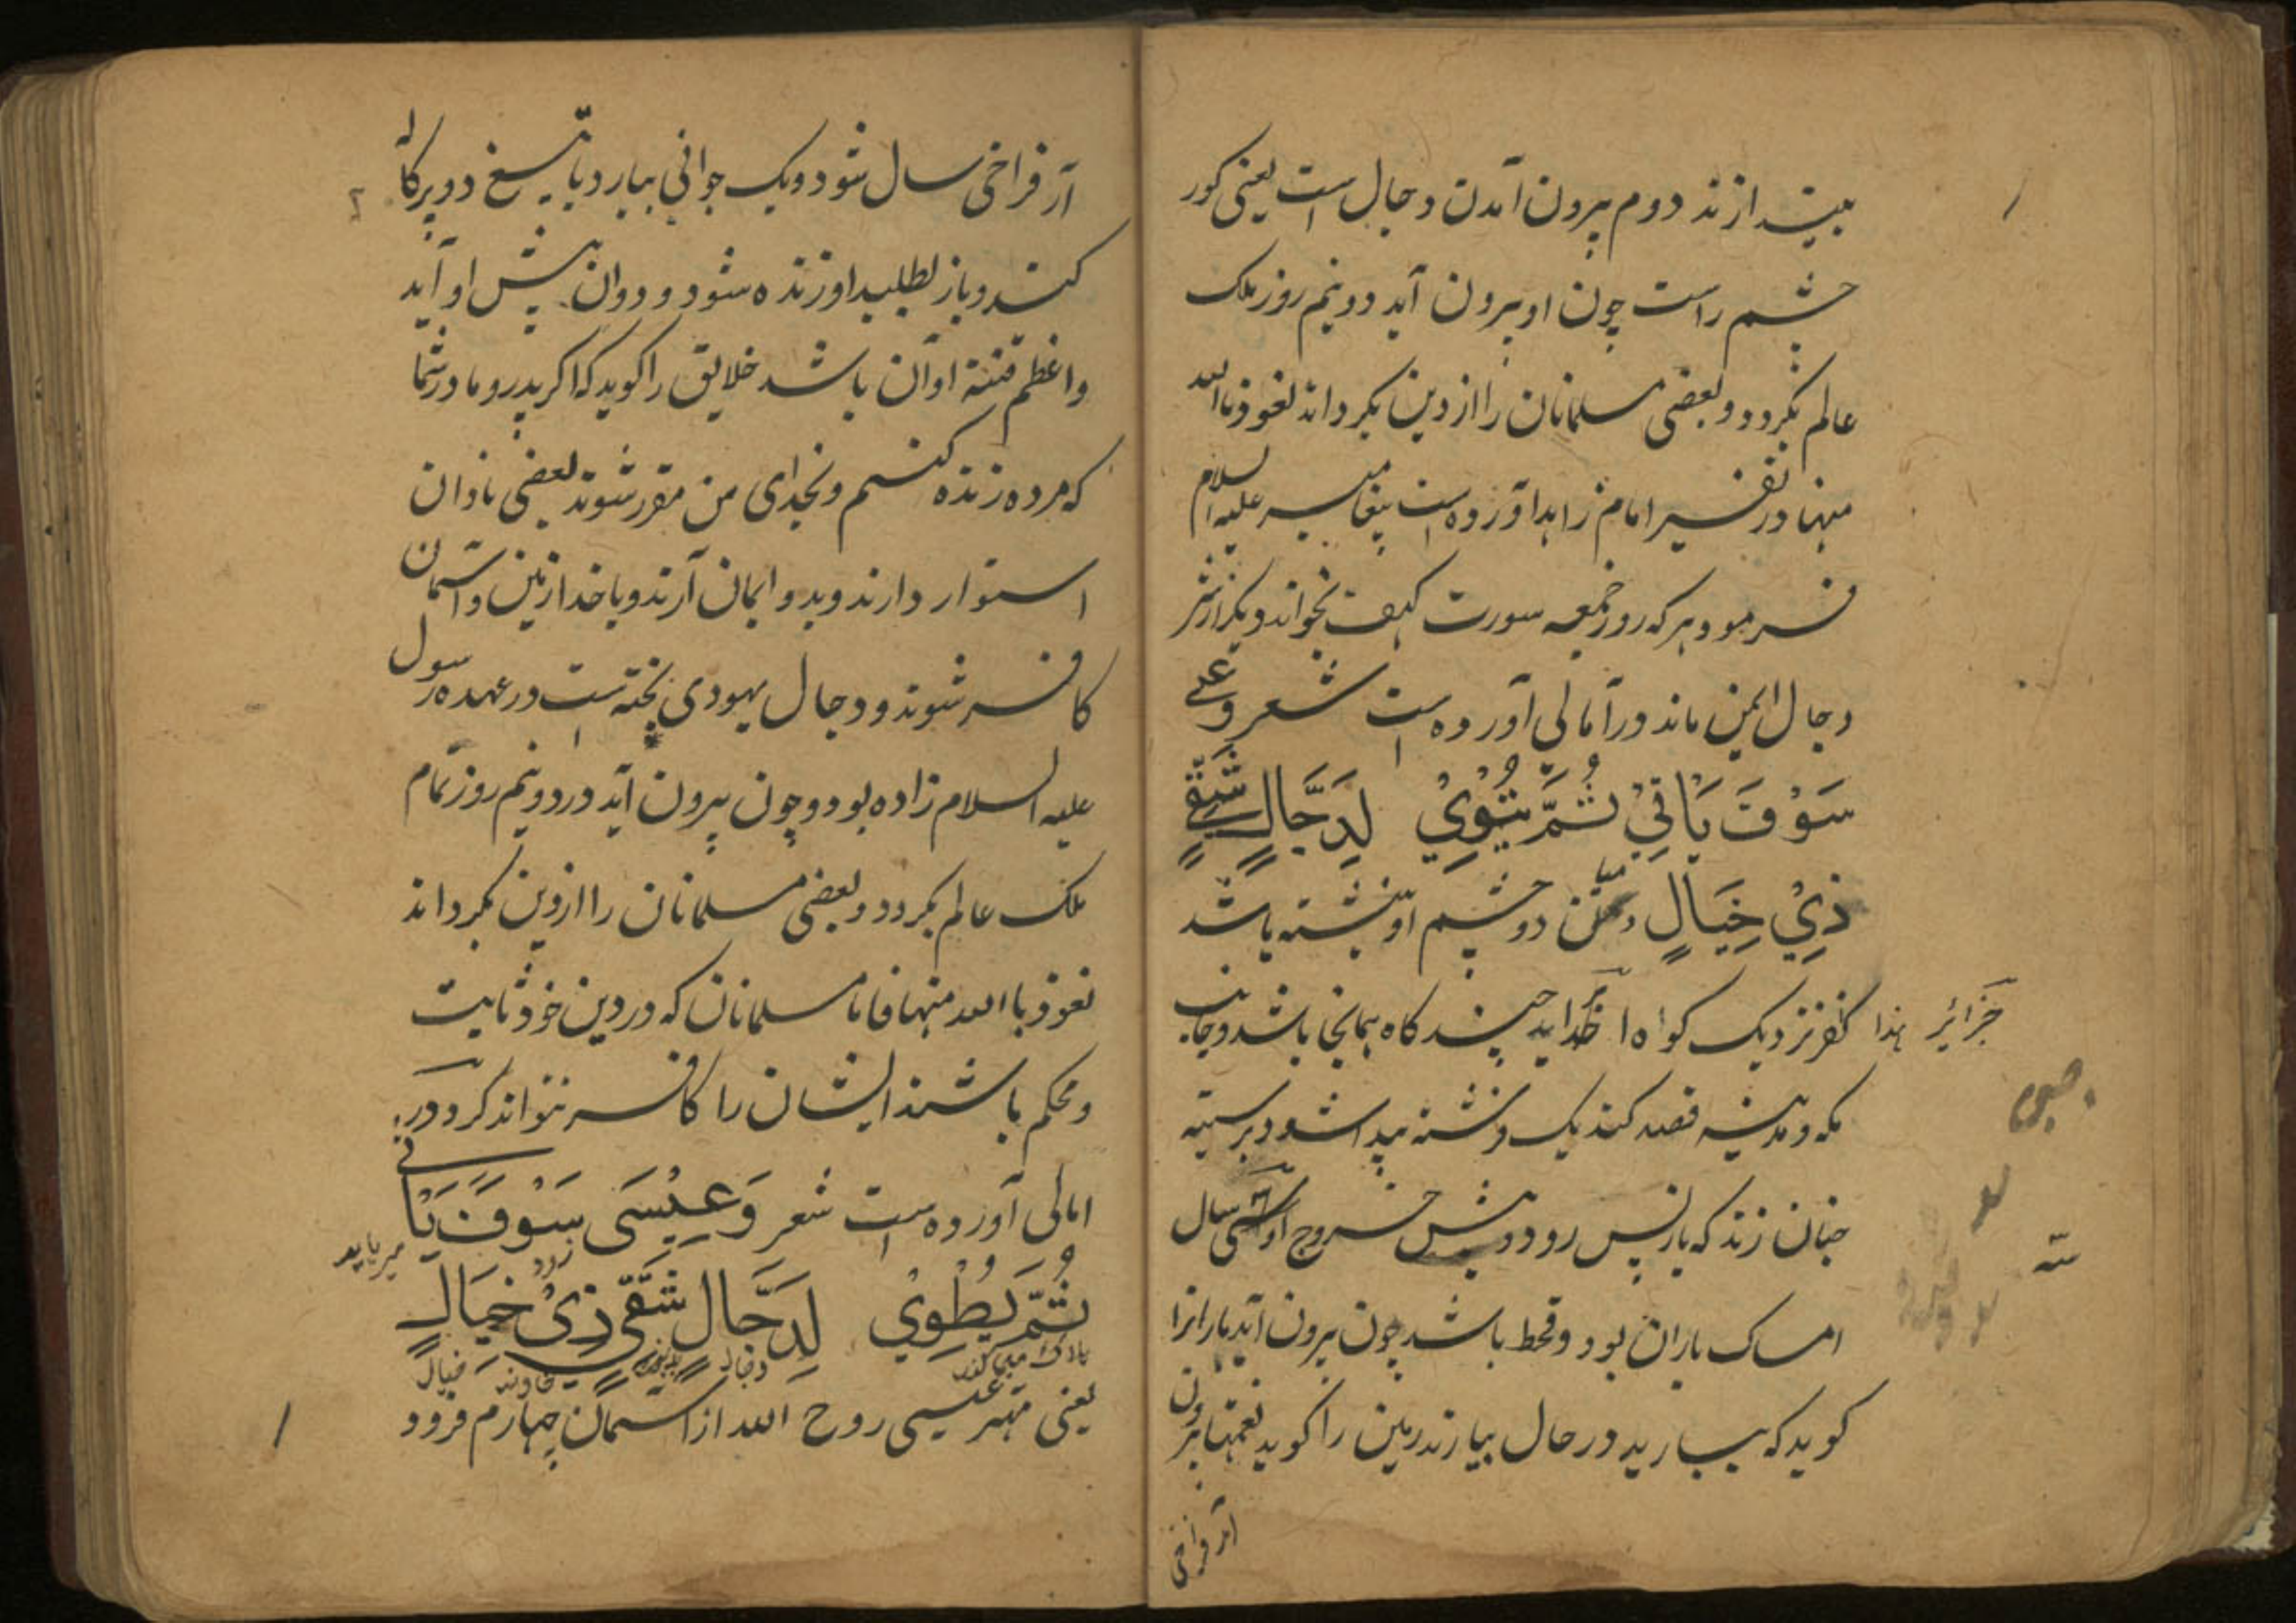 بیندازند دوم بیرون آمدن دجال است یعنی کور
چشم راست چون او بیرون آید دو و نیم روز ملک
عالم بکردد و بعضی مسلمانان را از دین بکرداند نعوذ باالله
منها در تفسیر امام زاهد آورده است پیغامبر علیه السلام
فرمود هر که روز جمعه سورت کهف بخواند و بکر از شر
دجال ایمن ماند در آمالی آورده است شعر و عیسی
سَوْفَ یَاتِیْ ثُمَّ یَتْوِیْ لِدَجَّالٍ شَقِیٍّ
ذِیْ خِیَالٍ دو چشم او نبشته باشد
جزائر هذا کفر نزدیک کواه خدا ید چند کاه بمانجا باشد و جانب
مکه و مدینه قصد کند یک فرشته پیدا شود بر سینه
چنان زند که باز پس رود و پیش خروج او سی سال
امساک باران بود و قحط باشد چون بیرون آید باران را
کوید که بیارید در حال بیارند زمین را کوید نعمتها بیرون
آر فراخی
آر فراخی سال شود و یک جوانی بیارد با تیغ دو پرکاله
کند و باز بطلبد او زنده شود و دوان پیش او آید
و اعظم فتنة او آن باشد خلایق را کوید که اکر پدر و مادر شما
که مرده زنده کنم و بخدای من مقر شوند بعضی نادان
استوار دارند و بدو ایمان آرند و با خدا زمین و آسمان
کافر شوند و دجال یهودی بچه است در عهده رسول
علیه السلام زاده بود و چون بیرون آید در دو و نیم روز تمام
ملک عالم بکردد و بعضی مسلمانان را از دین بکرداند
نعوذ باالله منها فاما مسلمانان که در دین خود ثابت
و محکم باشند ایشان را کافر نتواند کرد در
امالی آورده است شعر وَعِیْسَی سَوْفَ یَاتِی
ثُمَّ یُطْوِیْ لِدَجَّالٍ شَقِّیٍ ذِیْ خِیَالٍ
هلاک میکند دجال خاوند خیال
یعنی مهتر عیسی روح الله از آسمان چهارم فرود